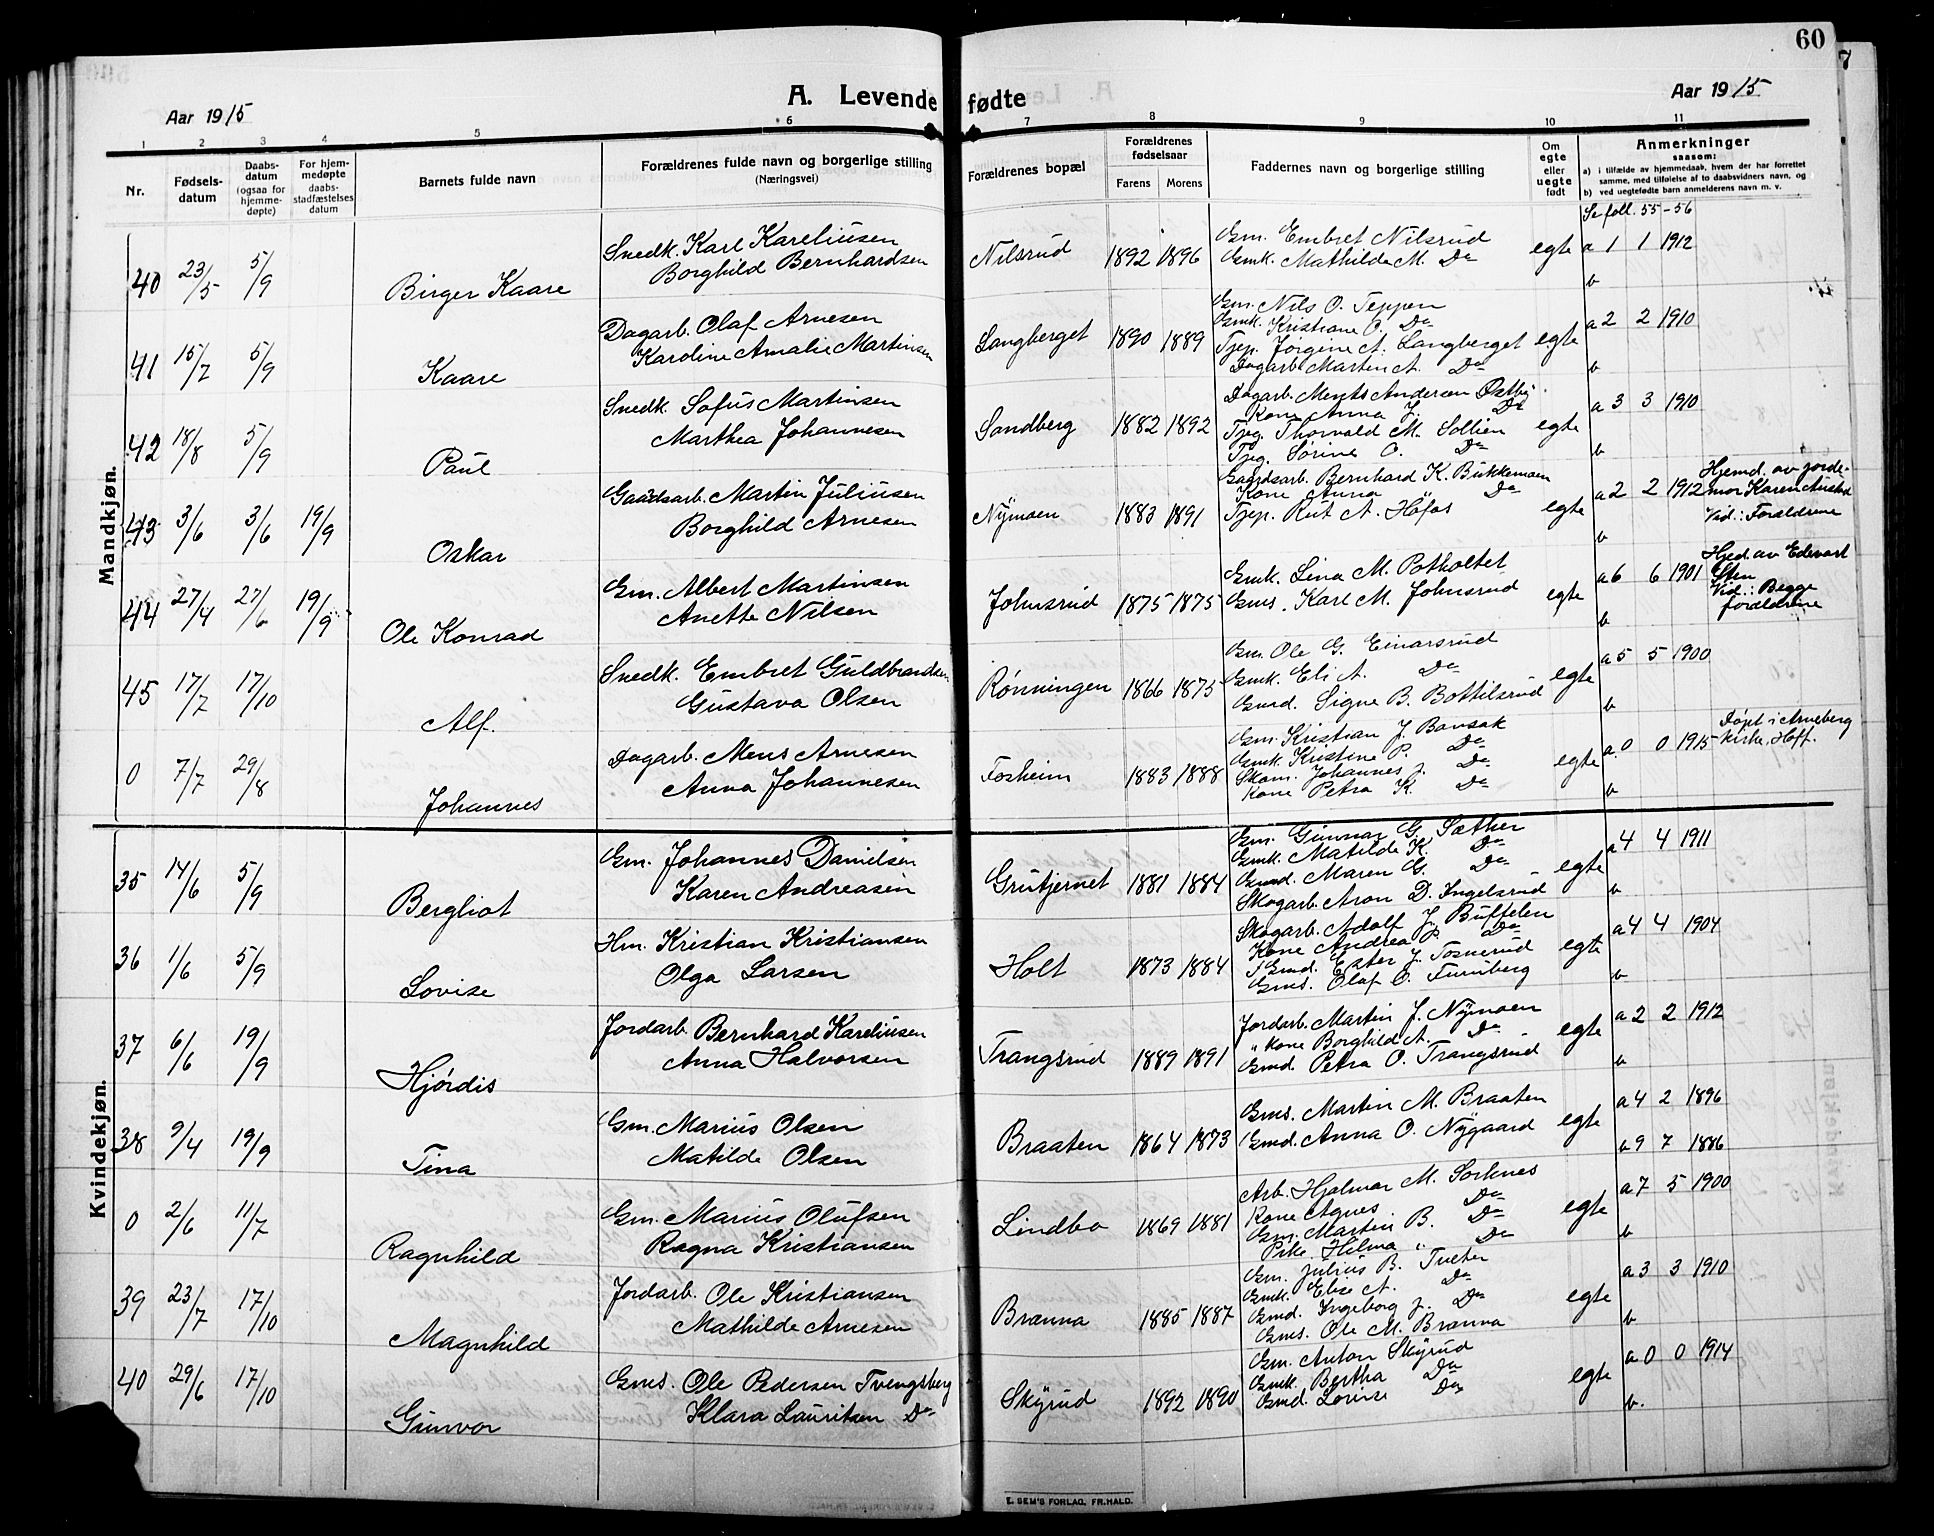 60
7
Aar 1915
A. Levende fødte
Aar 1915
1 2 3 4 5 6 7 8 9 10 11
Nr.
Fødsels-
datum
Daabs-
datum
(ogsaa for
hjemme-
døpte)
For hjem-
medøpte
daabs-
stadfæstelses
datum
Barnets fulde navn
Forældrenes fulde navn og borgerlige stilling
(Næringsvei)
Forældrenes bopæl
Forældrenes
fødselsaar
Farens Morens
Faddernes navn og borgerlige stilling
Om
egte
eller
uegte
født
Anmerkninger
saasom:
a) i tilfælde av hjemmedaab, hvem der har forrettet
samme, med tilføielse af to daabsvidners navn, og
b) ved uegtefødte barn anmelderens navn m. v.
Se foll. 55-56
Mandkjøn.
40 23/5 5/9 Birger Kaare
Snedk. Karl Kareliusen
Borghild Bernhardsen
Nilsrud 1892 1896
Gm. Embret Nilsrud
Gmk. Mathilde M. Do
egte a 1 1 1912
b
41 15/7 5/9 Kaare
Dagarb. Olaf Arnesen
Karoline Amalie Martinsen
Langberget 1890 1889
Gm. Nils O. Teppen
Gmk. Kristiane O. Do
Tjep. Jørgine A. Langberget
Dagarb. Martin A. Do
egte a 2 2 1910
b
42 18/8 5/9 Paul
Snedk. Sofus Martinsen
Marthea Johannesen
Sandberg 1882 1892
Dagarb. Ments Andersen Østby
Kone Anna J. Do
Tjeg. Thorvald M. Sollien
Tjeg. Sørine O. Do
egte a 3 3 1910
b
43 3/6 3/6 19/9 Oskar
Gaardsarb. Martin Juliusen
Borghild Arnesen
Nymoen 1883 1891
Gaardsarb. Bernhard K. Bukkemoen
Kone Anna Do
Tjep. Rut A. Høfos
egte a 2 2 1912
b
Hjemd. av jorde-
mor Karen Austad
Vid.: Forældrene
44 27/4 27/6 19/9 Ole Konrad
Gm. Albert Martinsen
Anette Nilsen
Johnsrud 1875 1875
Gmk. Lina M. Potholtet
Gms. Karl M. Johnsrud
egte a 6 6 1901
b
Hjed. av Edevart
Sten
Vid.: Begge
forældrene
45 17/7 17/10 Alf.
Snedk. Embret Guldbrandsen
Gustava Olsen
Rønningen 1866 1875
Gm. Ole G. Einarsrud
Gmk. Eli A. Do
Gmd. Signe B. Bottilsrud
egte a 5 5 1900
b
0 7/7 29/8 Johannes
Dagarb. Mens Arnesen
Anna Johannesen
Fosheim 1883 1888
Gm. Kristian J. Bansak
Gmk. Kristine P. Do
Skom. Johannes J. Do
Kone Petra K. Do
egte a 0 0 1915
b
Døpt i Arneberg
kirke, Hoff.
Kvindekjøn.
35 14/6 5/9 Bergliot
Gm. Johannes Danielsen
Karen Andreasen
Grutjernet 1881 1884
Gm. Gunnar G. Sæther
Gmk. Matilde K. Do
Gmd. Maren G. Do
Skogarb. Aron D. Ingelsrud
egte a 4 4 1911
b
36 1/6 5/9 Lovise
Hm. Kristian Kristiansen
Olga Larsen
Holt 1873 1884
Skogarb. Adolf J. Buffelen
Kone Andrea P. Do
Gmd. Ester J. Tosnerud
Gms. Olaf O. Furuberg
egte a 4 4 1904
b
37 6/6 19/9 Hjørdis
Jordarb. Bernhard Kareliusen
Anna Halvorsen
Trangsrud 1889 1891
Jordarb. Martin J. Nymoen
" Kone Borghild A. Do
Gmd. Petra O. Trangsrud
egte a 2 2 1912
b
38 9/4 19/9 Tina
Gm. Marius Olsen
Matilde Olsen
Braaten 1864 1873
Gms. Martin M. Braaten
Gmd. Anna O. Nygaard
egte a 4 2 1896
b 9 7 1886
0 2/6 11/7 Ragnhild
Gm. Marius Olufsen
Ragna Kristiansen
Lindbo 1869 1881
Arb. Hjalmar M. Sorknes
Kone Agnes Do
Gm. Martin B. Do
Pike Hilma " Do
egte a 7 5 1900
b
39 23/7 17/10 Magnhild
Jordarb. Ole Kristiansen
Mathilde Arnesen
Brænna 1885 1887
Gm. Julius B. Tveter
Gmk. Elise A. Do
Gmd. Ingeborg J. Do
Gms. Ole M. Brænna
egte a 3 3 1910
b
40 29/6 17/10 Gunvor
Gms. Ole Pedersen Tvengsberg
Klara Lauritsen Do
Skyrud 1892 1890
Gm. Anton Skyrud
Gmk. Bertha Do
Gmd. Lovise Do
egte a 0 0 1914
b.
E. SEM'S FORLAG, FR.HALD.